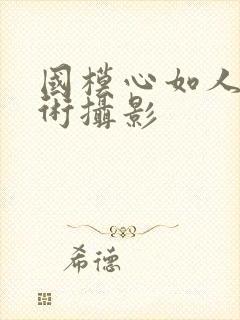 國模心如人
術攝影
希德